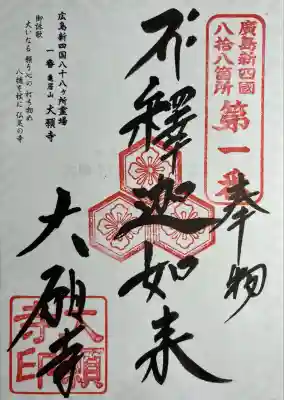 廣島新四國
八拾八箇所
第一番
奉拝
釋迦如来
大願寺
広島新四国八十八ヶ所霊場
一番 亀居山 大願寺
御詠歌
大いなる 願う心の打ち初め
八幡を杖に 弘誓の寺
大願
寺印